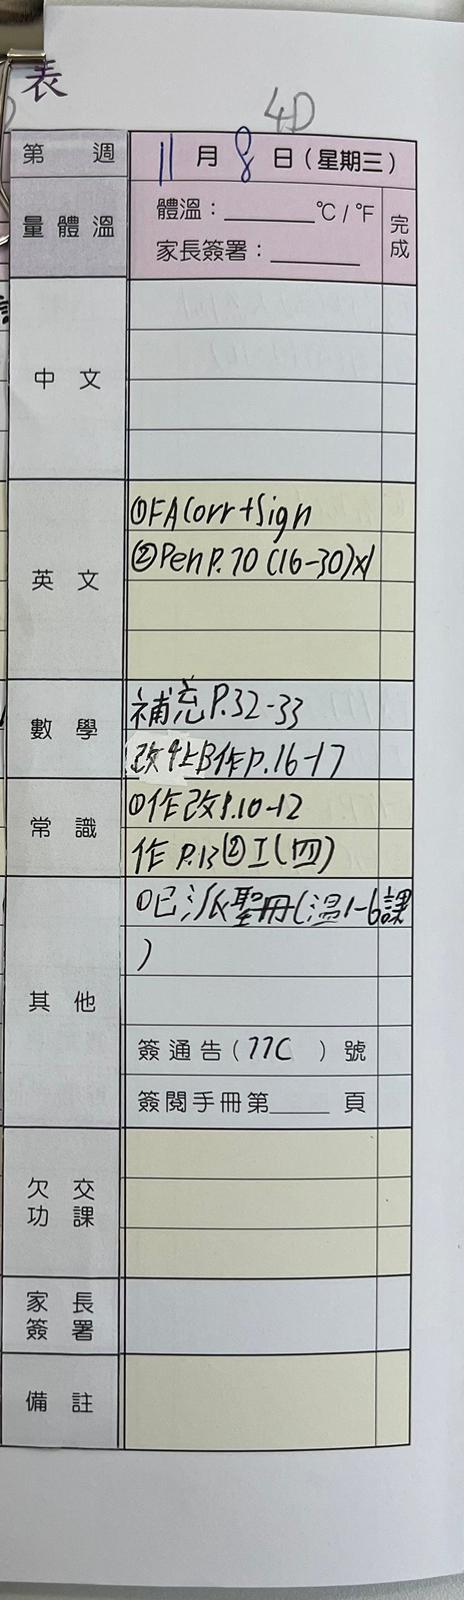 表
4D
第 週 11月8日(星期三)
量體溫 體溫：______℃/℉ 完成
家長簽署：______
中文
英文 ①FA Corr+Sign
②Pen P.70 (16-30)x1
數學 補充P.32-33
改4上B作P.16-17
常識 ①作改P.10-12
作P.13②工(四)
其他 ①已派聖冊(溫1-6課
)
簽通告(77C)號
簽閱手冊第____頁
欠交功課
家長簽署
備註